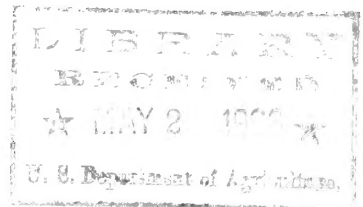 LIBRARY
RECEIVED
★ MAY 2 ★
U. S. Department of Agriculture.